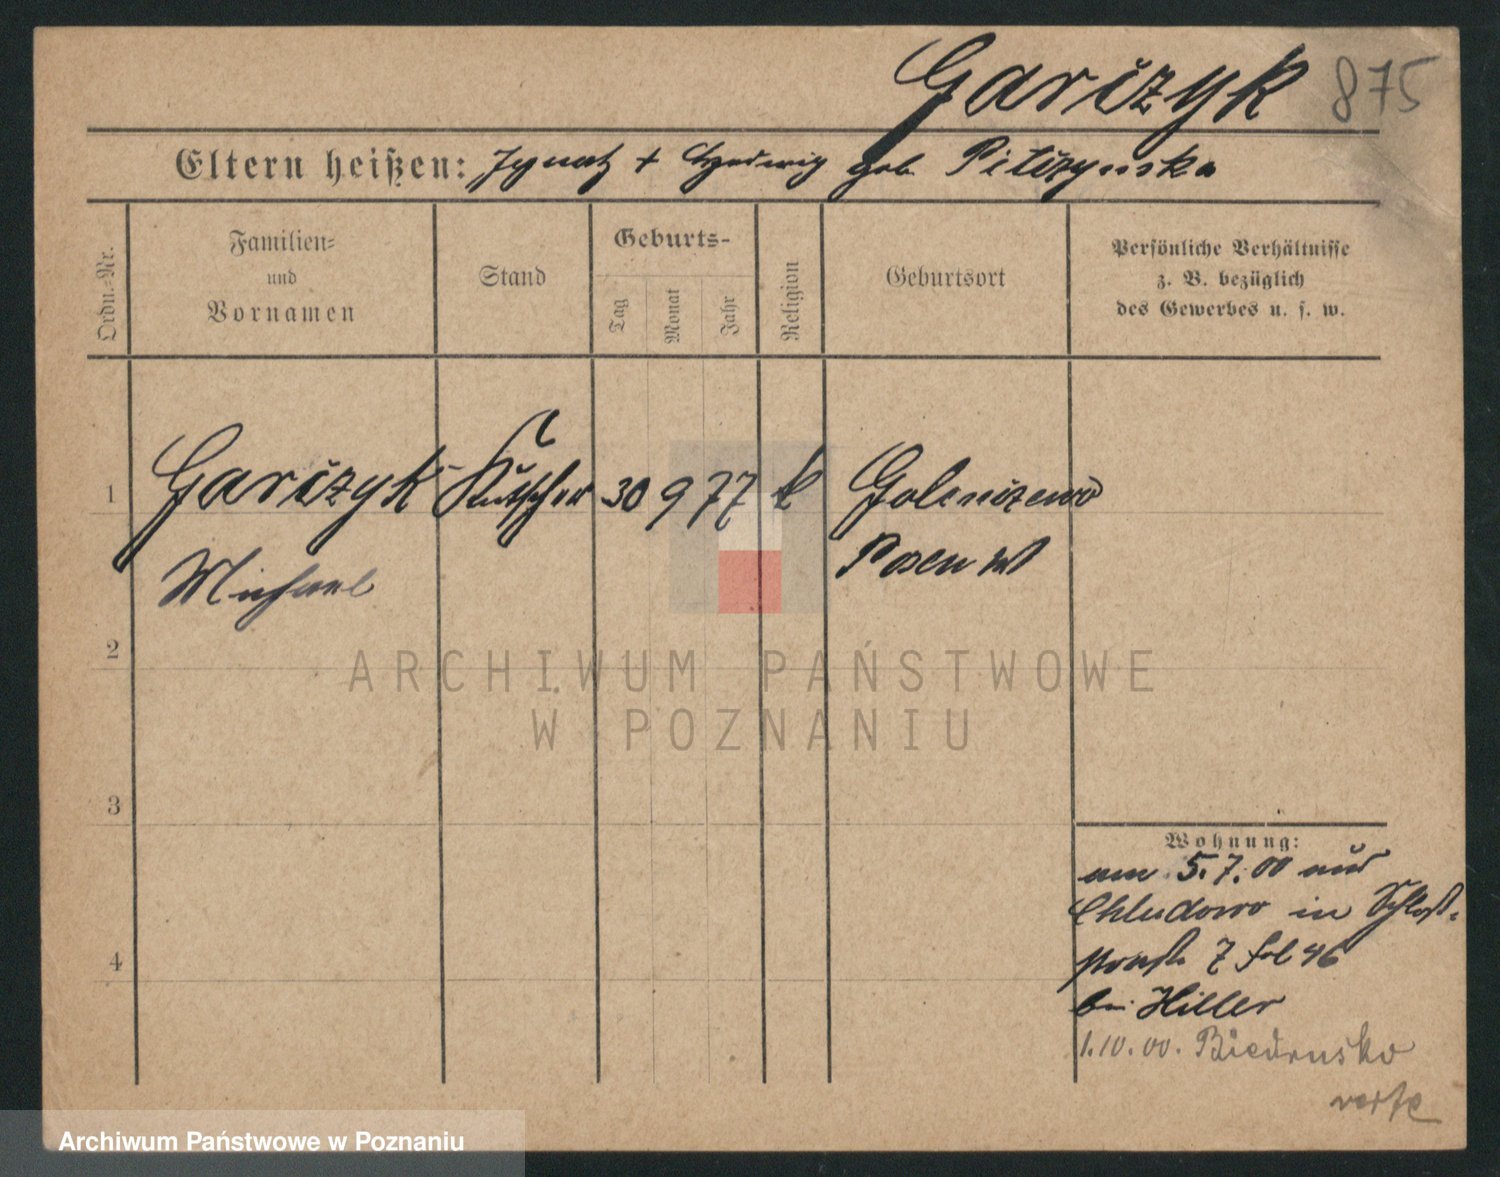 Garczyk 875
Eltern heißen: Ignatz + Hedwig geb.
Ordn.-Nr.
Familien-
und
Vornamen
Stand
Geburts-
Tag
Monat
Jahr
Religion
Geburtsort
Persönliche Verhältnisse
z. B. bezüglich
des Gewerbes u. s. w.
1 Garczyk Kutscher 30 9 77 k Golenczewo
Michael Posen
2
ARCHIWUM PAŃSTWOWE
W POZNANIU
3
4
Wohnung:
am 5.7.00 aus
Chludowo in Schloß-
7 46
bei Hiller
1.10.00. Biedrusko
Archiwum Państwowe w Poznaniu